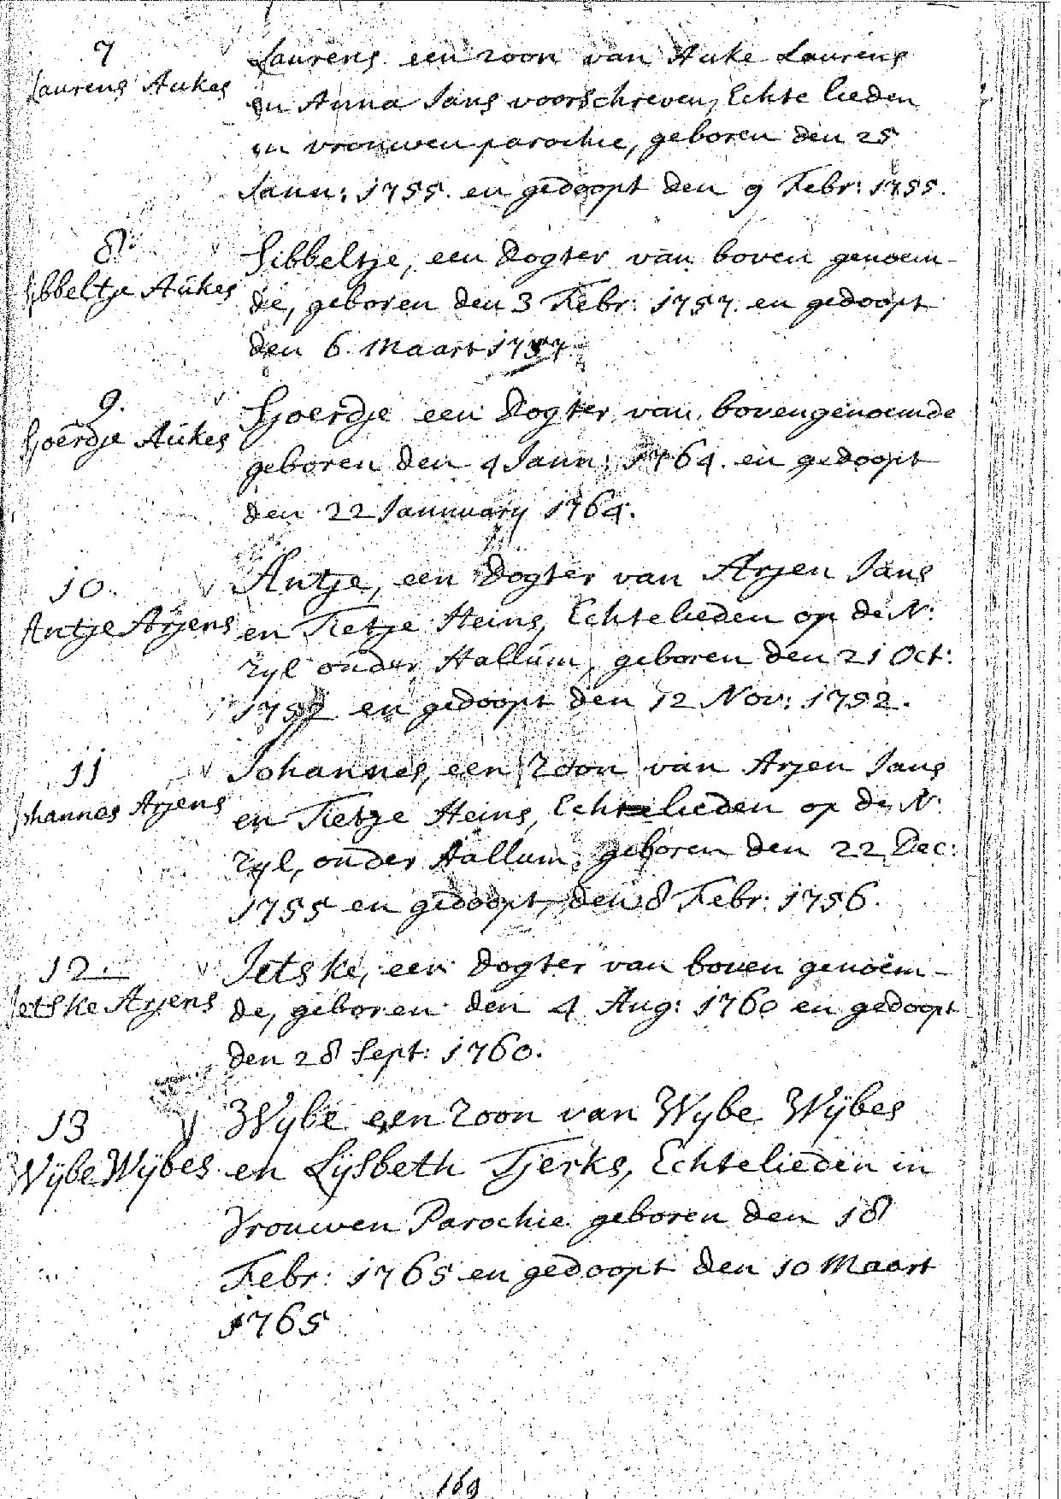 7
Laurens Aukes
Laurens een zoon van Auke Laurens
en Anna Jans voorschreven, Echte lieden
in vrouwen parochie, geboren den 25
Jann: 1755. en gedoopt den 9 Febr: 1755.
8.
Sibbeltje Aukes
Sibbeltje, een dogter van boven genoem-
de, geboren den 3 Febr: 1757. en gedoopt
den 6 Maart 1757
9.
Sjoerdje Aukes
Sjoerdje een dogter van bovengenoemde
geboren den 4 Jann: 1764. en gedoopt
den 22 Jannuary 1764.
10.
Antje Arjens
Antje, een dogter van Arjen Jans
en Tietje Heins, Echtelieden op de N:
Zyl onder Hallum, geboren den 21 Oct:
1752 en gedoopt den 12 Nov: 1752.
11
Johannes Arjens
Johannes, een zoon van Arjen Jans
en Tietje Heins, Echtelieden op de N:
Zyl, onder Hallum, geboren den 22 Dec:
1755 en gedoopt, den 8 Febr: 1756.
12.
Jetske Arjens
Jetske, een dogter van boven genoem-
de, geboren den 4 Aug: 1760 en gedoopt
den 28 Sept: 1760.
13
Wÿbe Wÿbes
Wybe een zoon van Wybe Wÿbes
en Lijsbeth Tjerks, Echtelieden in
Vrouwen Parochie geboren den 18
Febr: 1765 en gedoopt den 10 Maart
1765
169